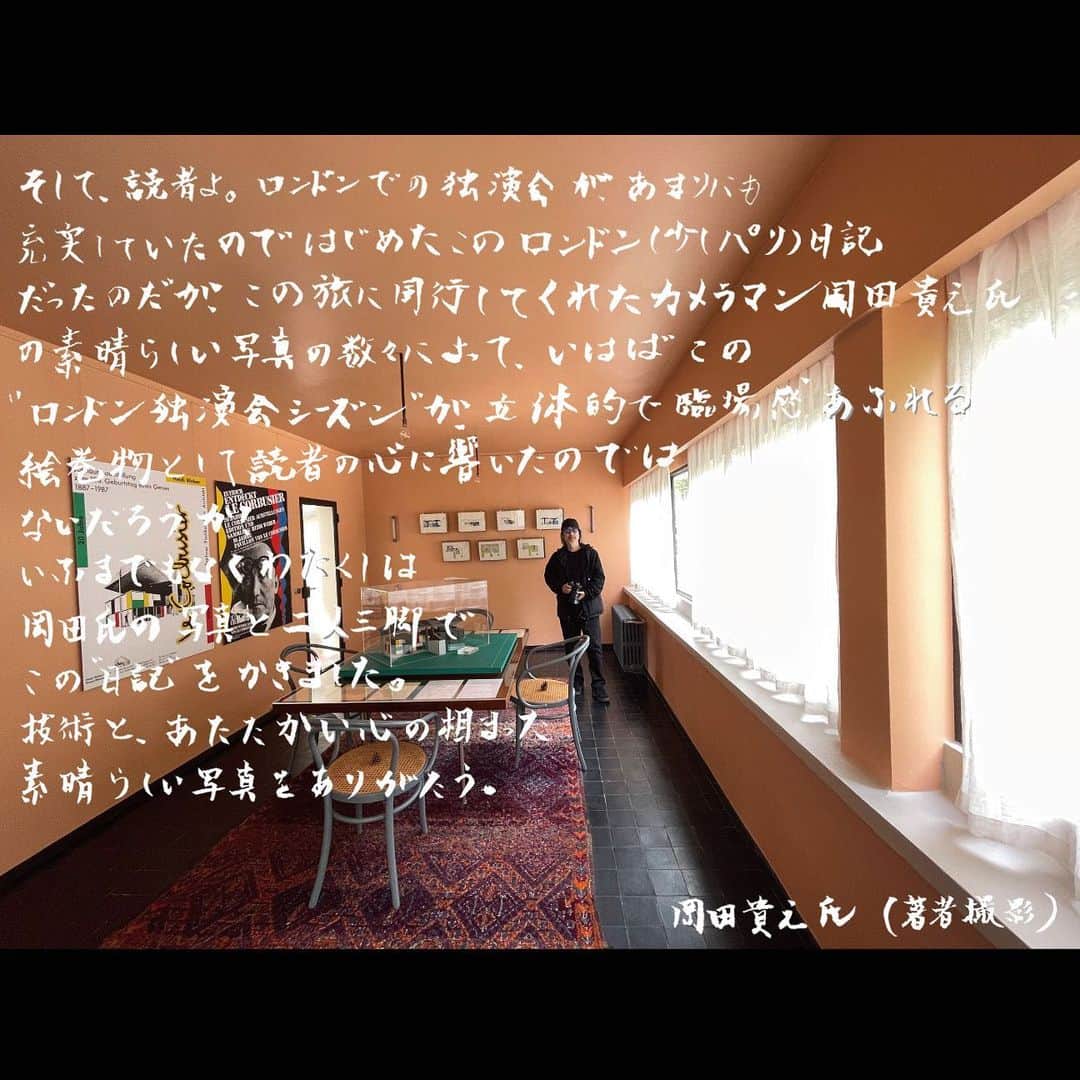 そして、読者よ。ロンドンでの独演会が、あまりにも
充実していたのではじめたこのロンドン(少しパリ)日記
だったのだが、この旅に同行してくれたカメラマン岡田貴之氏
の素晴らしい写真の数々によって、いはばこの
"ロンドン独演会シーズン"が、立体的で臨場感あふれる
絵巻物として読者の心に響いたのでは
ないだろうか?
いままでもひくわたくしは
岡田氏の写真と二人三脚で
この"日記"をかきました。
技術と、あたたかい心の相まった
素晴らしい写真をありがたう。
岡田貴之氏 (著者撮影)
Geburtstag eines Genies
1887-1987
Heidi Weber
ENTDECKT
LE CORBUSIER